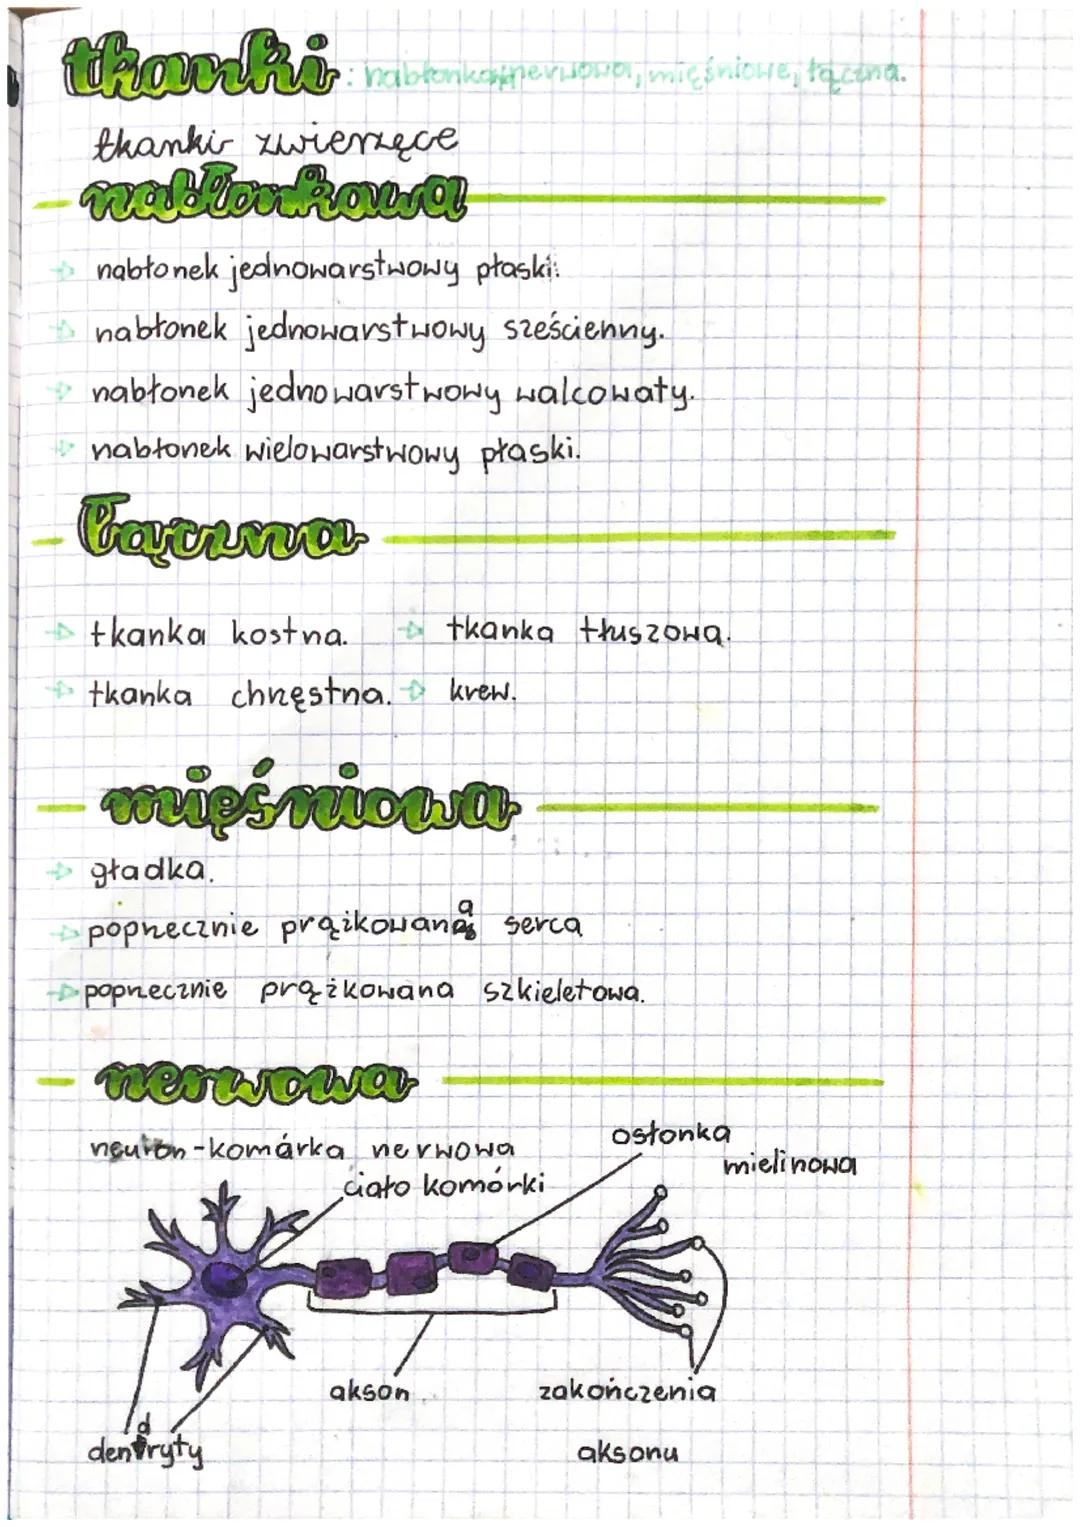 tkanki: nabłonkowa, nerwowa, mięśniowe, łączna.
tkanki zwierzęce
nabłonkowa
nabłonek jednowarstwowy płaski.
nabłonek jednowarstwowy sześcienny.
nabłonek jednowarstwowy walcowaty.
nabłonek wielowarstwowy płaski.
łączna
tkanka kostna. tkanka tłuszowa.
tkanka chrzęstna. krew.
mięśniowa
gładka.
poprzecznie prążkowana serca
poprzecznie prążkowana szkieletowa.
nerwowa
neuron - komórka nerwowa
osłonka
mielinowa
ciało komórki
akson
zakończenia
aksonu
dendryty